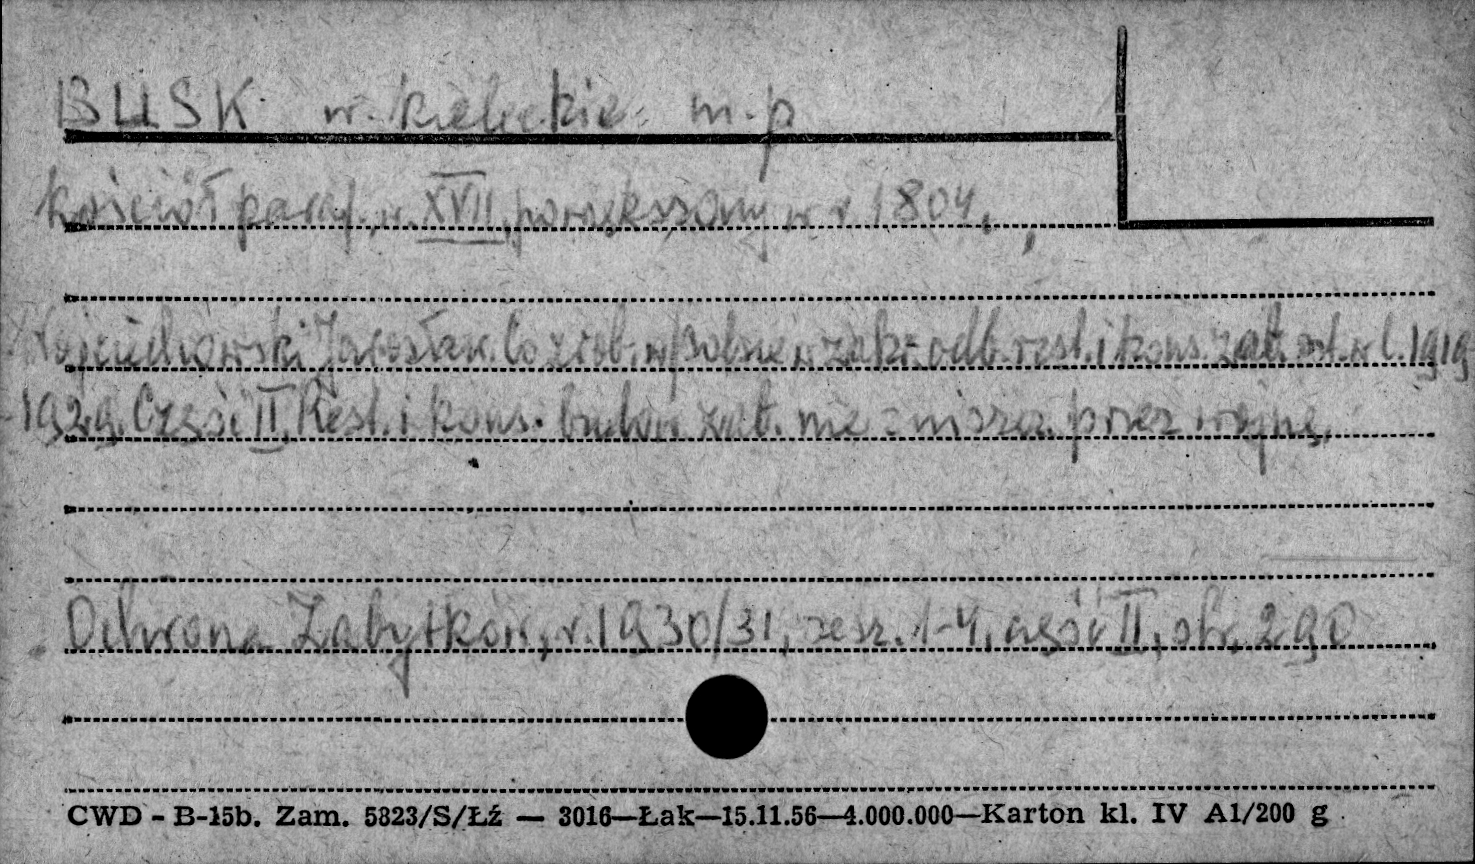 BUSK w. kieleckie m. p
kościół paraf. w. XVII, powiększony w r. 1804.,
Wojciechowski Jarosław. Co zrob. w Polsce w zakr. odb. rest. i kons. zab. od. w l. 1919
-1929. Część II. Rest. i kons. budow. zab. nie zniszcz. przez wojnę.
Ochrona Zabytków, r. 1930/31, zesz. 1-4, część II, str. 290
CWD - B-15b. Zam. 5823/S/Łź — 3016—Łak—15.11.56—4.000.000—Karton kl. IV A1/200 g